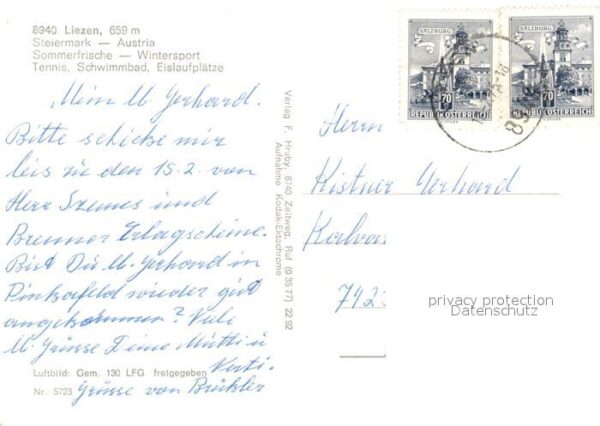 8940 Liezen, 659 m
Steiermark — Austria
Sommerfrische — Wintersport
Tennis, Schwimmbad, Eislaufplätze
Mein lb. Gerhard.
Bitte schicke mir
bis zu den 15.2. von
Herr Szemes und
Brenner Erlagscheine.
Bist Du lb. Gerhard in
Pinkafeld wieder gut
angekommen? Viele
lb. Grüsse Deine Mutti u
Vati.
Grüsse von Brückler
Luftbild: Gem. 130 LFG freigegeben
Nr. 5723
Verlag F. Hruby, 8740 Zeltweg, Ruf (0 35 77) 22 92
Aufnahme Kodak-Ektachrome
SALZBURG
70
REPUBLIK ÖSTERREICH
SALZBURG
70
REPUBLIK ÖSTERREICH
Herrn
Kistner Gerhard
742
privacy protection
Datenschutz